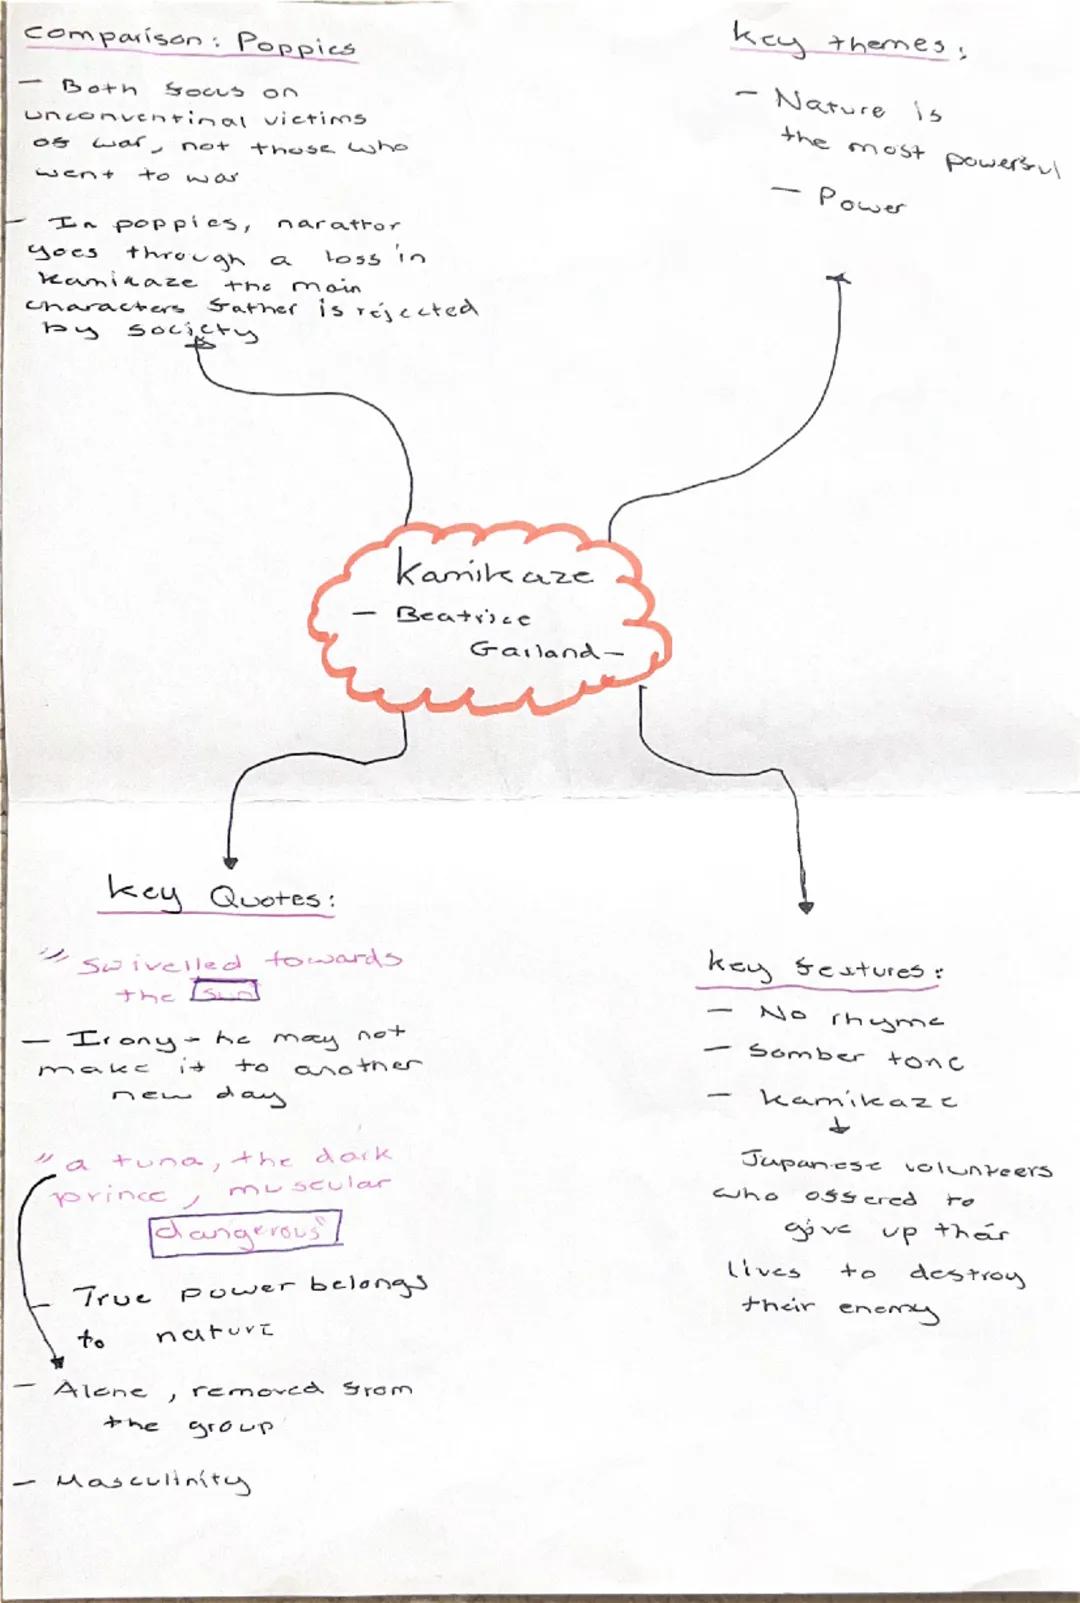 Comparison: Poppies
- Both focus on
unconventinal victims
of war, not those who
went to war
- In poppies, narattor
goes through a loss in
Kamikaze the main
characters father is rejected
by society
Key themes:
- Nature is
the most powerful
- Power
Kamikaze
- Beatrice
Garland -
Key Quotes:
"swivelled towards
the sun
- Irony - he may not
make it to another
new day
"a tuna, the dark
prince, muscular
dangerous"
- True power belongs
to nature
- Alone, removed from
the group
- Masculinity
Key features:
- No rhyme
- Somber tone
- Kamikaze
↓
Japanese volunteers
who offered to
give up their
lives to destroy
their enemy